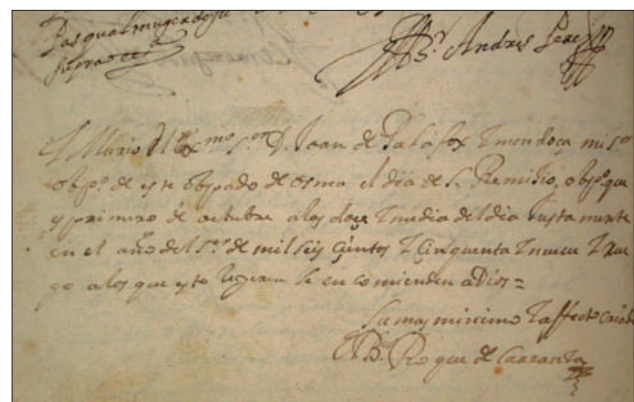 Pasqual muger de Ju
B.r Andres Perez
Murio el Ex.mo s.or D. Joan de Palafox Y mendoça mi s.or
obp.o de este obispado de osma el dia de S. Remixio, obp.o que
y primero de octubre a los doçe Y media del dia Justamente
en el año del s.or de mil seys çientos Y Çinquenta Y nueue Y Rue
go a los que esto leyeren le encomienden a Dios =
su mas minimo Y affecto criado
El B.r Roque de Carranza